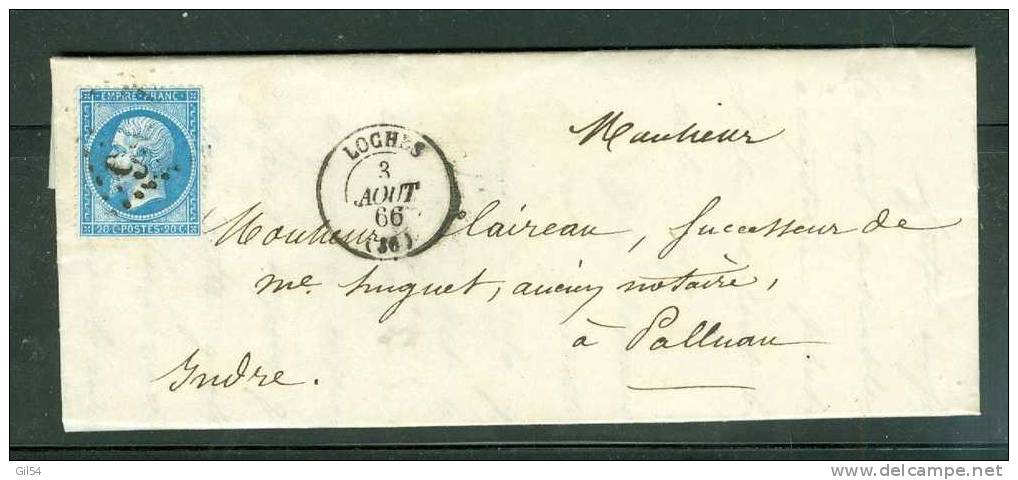 EMPIRE FRANC
20 C POSTES 20 C
LOCHES
3
AOUT
66
(36)
Monsieur
Monsieur Claireau, Successeur de
me. huguet, ancien notaire,
à Palluau
Indre.
Gil54
www.delcampe.net